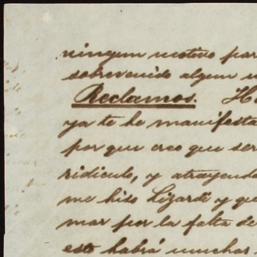 ningun motivo par
sobrevenido algun
Reclamos. H
ya te he manifesta
por que creo que ser
ridiculo, y atrayendo
me hiso Lizardi y qu
mar por la falta de
esto habrá muchas